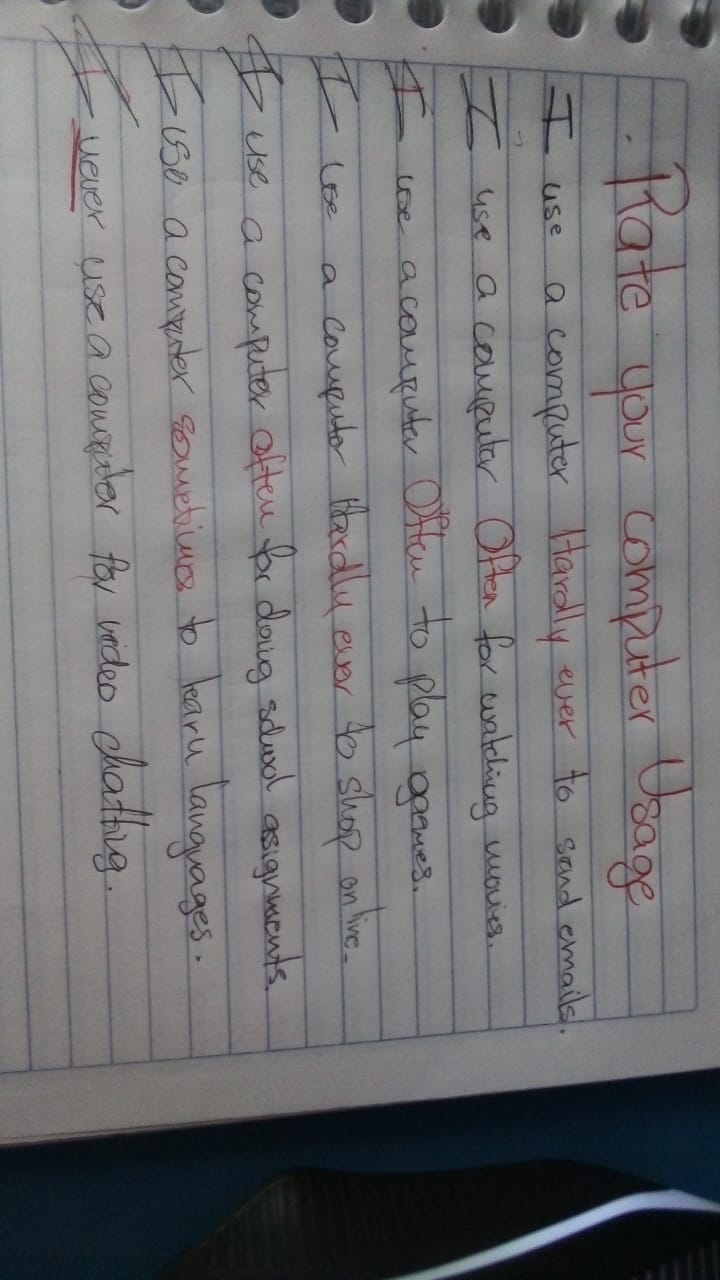 Rate your computer Usage
I use a computer Hardly ever to send emails.
I use a computer Often for watching movies.
I use a computer Often to play games.
I use a computer Hardly ever to shop on line.
I use a computer often for doing school assignments.
I use a computer sometimes to learn languages.
I never use a computer for video chatting.